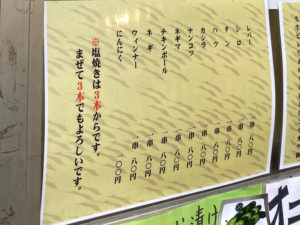 レバー 一串 八〇円
シロ 一串 八〇円
タン 一串 八〇円
ハツ 一串 八〇円
カシラ 一串 八〇円
ナンコツ 一串 八〇円
ネギマ 一串 八〇円
チキンボール 一串 八〇円
ネギ 一串 八〇円
ウィンナー 一串 八〇円
にんにく 一串 一〇〇円
※塩焼きは3本からです。
まぜて3本でもよろしいです。
漬け